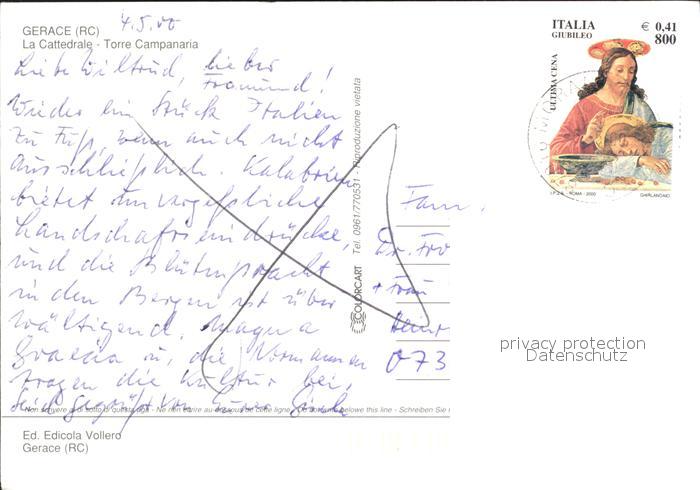 GERACE (RC)
La Cattedrale - Torre Campanaria
4.5.00
Liebe Wiltrud, lieber
Traumund!
Wieder ein Stück Italien
zu Fuß, wenn auch nicht
ausschließlich. Kalabrien
bietet unvergeßliche
Landschaftseindrücke,
und die Blütenpracht
in den Bergen ist über
wältigend. Magna
Graecia u. die Normannen
tragen die Kultur bei.
Seid gegrüßt von Eurer
Non scrivere al di sotto di questa riga - Ne rien écrire au-dessous de cette ligne - Do not write below this line - Schreiben Sie
Ed. Edicola Vollero
Gerace (RC)
COLORCART Tel. 0961/770531 - Riproduzione vietata
ITALIA
GIUBILEO
€ 0,41
800
ULTIMA CENA
I.P.Z.S. - ROMA - 2000
GHIRLANDAIO
Fam.
Dr.
+ Frau
Hein
073
privacy protection
Datenschutz